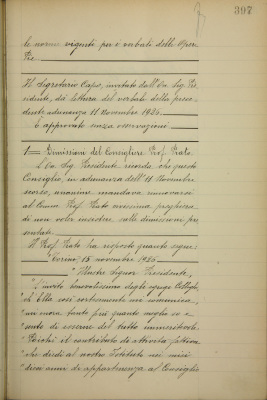 397
le norme vigenti per i verbali delle Opere
Pie
Il Segretario Capo, invitato dall'On. Sig. Pre-
sidente, dà lettura del verbale della prece-
dente adunanza 11 Novembre 1925.
È approvato senza osservazioni
1 = Dimissioni del Consigliere Prof. Prato.
L'On. Sig. Presidente ricorda che questo
Consiglio, in adunanza dell'11 Novembre
scorso, unanime mandava rinnovarsi
al Prof. Prato vivissima preghiera
di non voler insistere nelle dimissioni pre-
sentate.
Il Prof. Prato ha risposto quanto segue:
"Torino, 15 novembre 1925
"Illustre Signor Presidente,
"L'invito degli egregi Colleghi
"ch'Ella così cortesemente mi comunica,
"mi onora tanto più quanto meglio so e
"sento di esserne del tutto immeritevole.
"Poiché il contributo di attività fattiva
"che diedi al nostro Istituto nei miei
"dieci anni di appartenenza al Consiglio